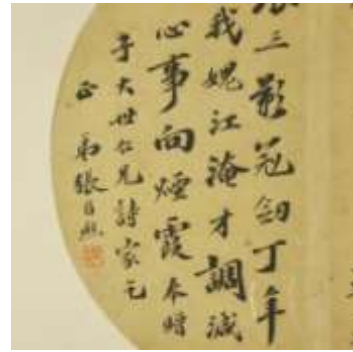 三影冠劍丁年
我媿江淹才調減
心事向煙霞 奉贈
子大世仁兄詩家乞
正 弟張百熙